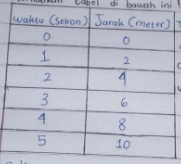 tabel di bawah ini
waktu (sekon) Jarak (meter)
0 0
1 2
2 4
3 6
4 8
5 10